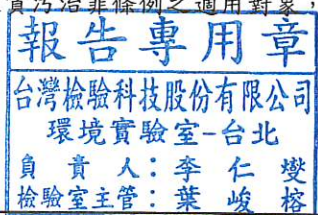 貪污治罪條例之適用對象，
報告專用章
台灣檢驗科技股份有限公司
環境實驗室-台北
負責人：李仁燮
檢驗室主管：葉峻榕